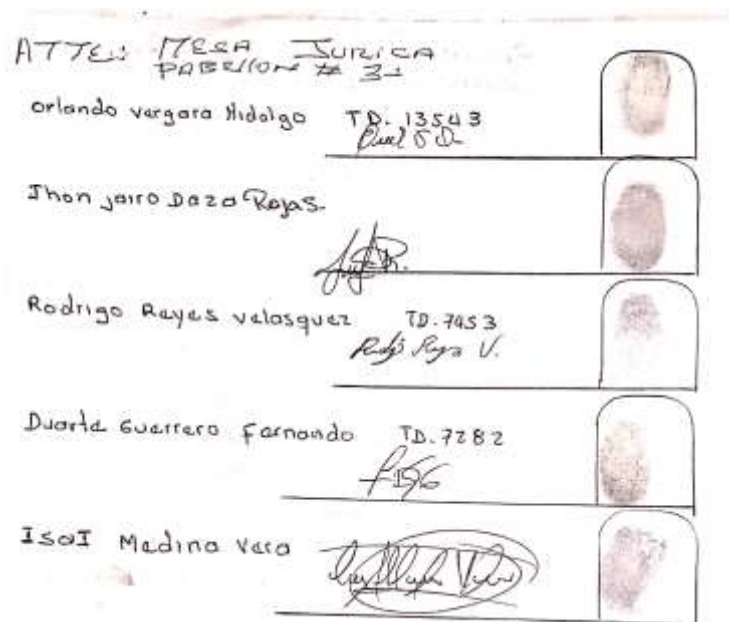 ATTE: MESA JURICA
PABELLON # 3-
Orlando vergara Hidalgo TD. 13543
Jhon jairo Daza Rojas
Rodrigo Reyes velasquez TD. 7453
Rodrigo Reyes V.
Duarte Guerrero Fernando TD. 7282
IsaI Medina Vera